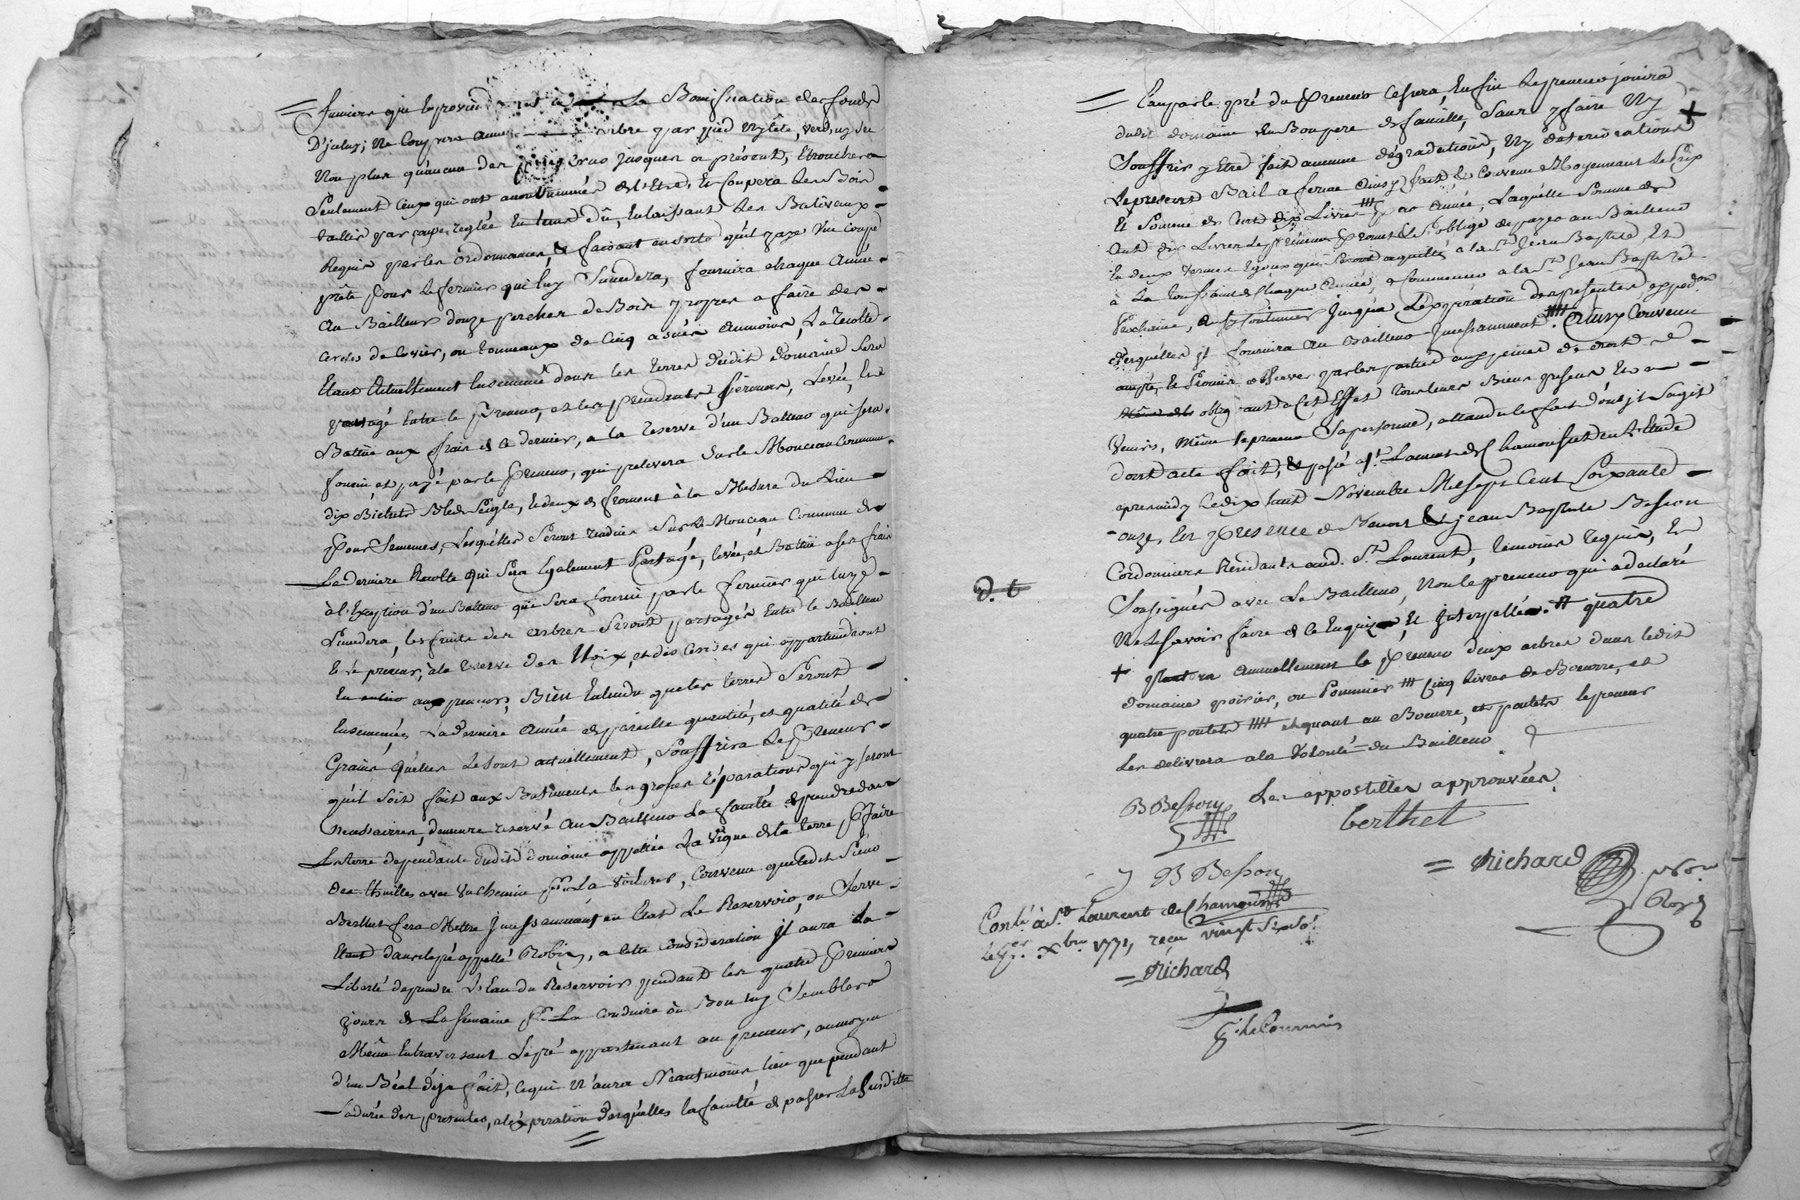 fumiers qui En proviendront a la Bonification des fonds
D'jcelux; Ne Coupera aucun arbre par pied Ny tête, verd ny sec
Non plus qu'aucun des crus jusques a présent, Ebrouchera
Seulement Ceux qui ont accoutummés de l'Etre, Et Coupera Les Bois
taillis par coupe reglée En tems dû, En laissant Les Baliveaux
Requis par les ordonnances, & faisant en sorte qu'il y aye Une Coupe
prête pour Le fermier qui luy Succedera, fournira chaque Année
Au Bailleur douze perches de Bois propres a faire des
Cercles de Cuvier, ou tonneaux de Cinq asnées aumoins, La recolte
Etant Actuellement Ensemencée dans les terres dudit Domaine Sera
partagé Entre le Preneur, et les précédents fermiers, Levée, Et
Battüe aux frais de Ce dernier, a la reserve d'un Batteur qui sera
fourni et payé par le Preneur, qui prelevera Sur le Monceau Commun
dix Bichets Bled Seigle, & deux de froment à la Mesure du Lieu
Pour Semences, Lesquelles Seront rendües Sur Le Monceau Commun de
La derniere Recolte qui Sera Egalement Partagé, levée, et Battüe a ses frais
à l'Exception d'un Batteur qui Sera fourni par le fermier qui luy
Succedera, les fruits des arbres Seront partagés Entre le Bailleur
Et le preneur, à la reserve des Noix, et des Cerises qui appartiendront
aux preneurs, Bien Entendu que les terres Seront
Ensemencées La derniere Année de pareille quantité, et qualité de
Grains qu'elles Le Sont actuellement, Souffrira Le Preneur
qu'il soit fait aux Batiments les grosses réparations qui y seront
Necessaires, demeure reservé Au Bailleur La faculté de prendre dans
La terre dependante dudit domaine appellée La Vigne de la terre Pr faire
des thuilles avec Un chemin pr La voiturer, Convenu que ledit Sieur
Berthet fera Mettre Incessamment en Etat Le Reservoir, ou Serve
Etant dans le pré appellé Robin, a cette Consideration Il aura la
Liberté de prendre L'Eau du Reservoir pendant les quatre Premiers
jours de La Semaine pr La Conduire où Bon luy Semblera
Même En traversant Le pré appartenant au preneur, au moyen
d'un Béal déja fait, Ce qui N'aura Neantmoins lieu que pendant
La durée des presentes, a l'expiration desquelles la faculté de passer La Susditte
Eau par le pré du Preneur Cessera, Enfin Le preneur jouira
dudit domaine En Bon pere de famille, Sans y faire Ny
Souffrir y Etre fait aucune dégradations, Ny déteriorations
Le present Bail a ferme Ainsy fait & Convenu Moyennant Le Prix
Et Somme de Cent dix Livres Par Année, Laquelle Somme de
Cent dix Livres Le preneur Promet & S'oblige de payer au Bailleur
En deux termes Egaux qui Seront acquittés à la St Jean Baptiste, Et
à La toussaint de Chaque Année, a Commencer a la St Jean Baptiste
Prochaine, & a Continuer Jusqu'a L'expiration des presentes expedon
desquelles Il fournira au Bailleur Incessamment. Ainsy Convenu
accepté, & Promis observer par les parties aux peines de droit &
obligeant a Cet Effet tous leurs Biens presens Et a
Venirs, Même le preneur Sa personne, attendu le fait dont Il S'agit
dont acte fait, & passé a St Laurent de Chamousset En L'Etude
apresmidy Le dix huit Novembre Mil sept Cent Soixante
onze, En Presence de Benoit & jean Baptiste Besson
Cordonniers Residants aud. St Laurent, temoins requis, Et
Soussignés avec Le Bailleur, Non le preneur qui a declaré
Ne Le Scavoir faire de ce Enquis, Et Interpellé. quatre
d. t
+ plantera annuellement le Preneur deux arbres dans ledit
domaine poirier, ou Pommier Cinq Livres de Beurre, et
quatre poulets et quant au Beurre, et poulets le preneur
Les delivrera a la Volonté du Bailleur.
B Besson Les appostilles approuvées
berthet
B Besson
Richard
Conlé à St Laurent de Chamousset
Le 1er Xbre 1771, recu vingt Six Sols
Richard